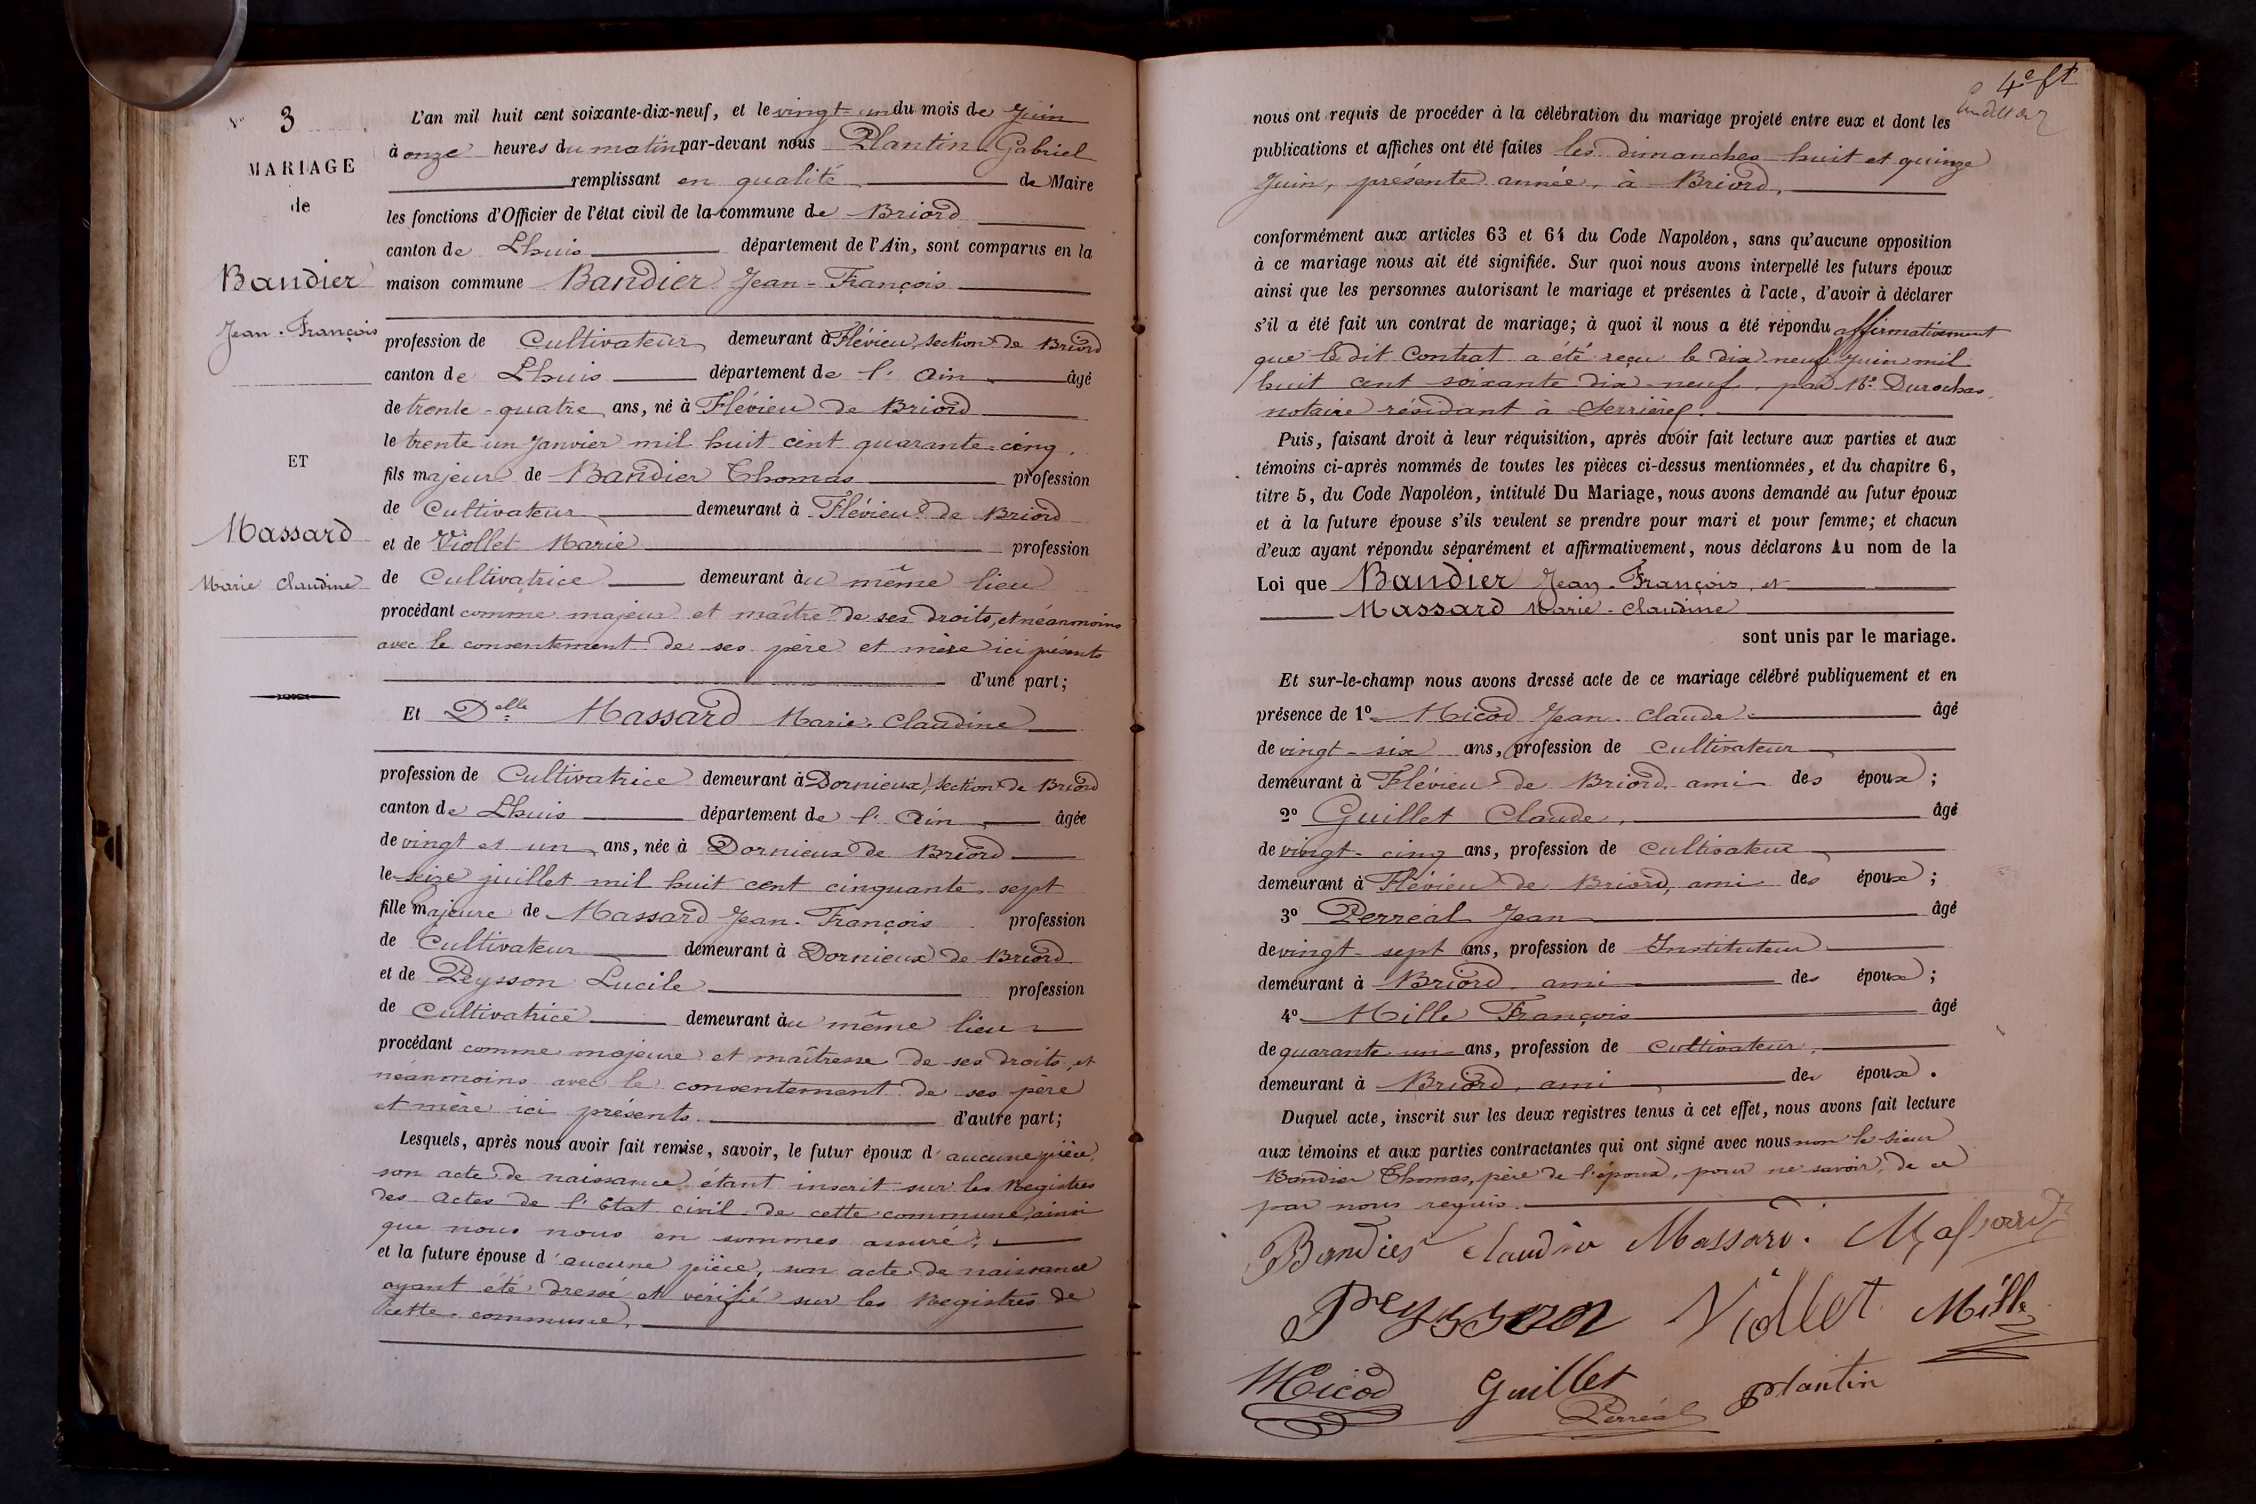 N° 3
MARIAGE
de
Bandier
Jean-François
ET
Massard
Marie Claudine
L'an mil huit cent soixante-dix-neuf, et le vingt-un du mois de Juin
à onze heures du matin par-devant nous Plantin Gabriel
remplissant en qualité de Maire
les fonctions d'Officier de l'état civil de la commune de Briord
canton de Lhuis département de l'Ain, sont comparus en la
maison commune Bandier Jean-François
profession de Cultivateur demeurant à Flévieu, section de Briord
canton de Lhuis département de l'Ain âgé
de trente-quatre ans, né à Flévieu de Briord
le trente un Janvier mil huit cent quarante-cinq,
fils majeur de Bandier Thomas profession
de Cultivateur demeurant à Flévieu de Briord
et de Viollet Marie profession
de Cultivatrice demeurant au même lieu
procédant comme majeur et maître de ses droits, et néanmoins
avec le consentement de ses père et mère ici présents
d'une part;
Et Delle Massard Marie-Claudine
profession de Cultivatrice demeurant à Dornieux, section de Briord
canton de Lhuis département de l'Ain, âgée
de vingt et un ans, née à Dornieux de Briord
le seize juillet mil huit cent cinquante-sept
fille majeure de Massard Jean-François profession
de Cultivateur demeurant à Dornieux de Briord
et de Peysson Lucile profession
de Cultivatrice demeurant au même lieu
procédant comme majeure et maîtresse de ses droits, et
néanmoins avec le consentement de ses père
et mère ici présents d'autre part;
Lesquels, après nous avoir fait remise, savoir, le futur époux d'aucune pièce,
son acte de naissance étant inscrit sur les Registres
des Actes de l'Etat civil de cette commune, ainsi
que nous nous en sommes assuré;
et la future épouse d'aucune pièce, son acte de naissance
ayant été dressé et vérifié sur les Registres de
cette commune,
4e ft
nous ont requis de procéder à la célébration du mariage projeté entre eux et dont les
publications et affiches ont été faites les dimanches huit et quinze
Juin, présente année, à Briord,
conformément aux articles 63 et 64 du Code Napoléon, sans qu'aucune opposition
à ce mariage nous ait été signifiée. Sur quoi nous avons interpellé les futurs époux
ainsi que les personnes autorisant le mariage et présentes à l'acte, d'avoir à déclarer
s'il a été fait un contrat de mariage; à quoi il nous a été répondu affirmativement
que le dit Contrat a été reçu le dix neuf juin mil
huit cent soixante dix-neuf, par Me Durochas,
notaire résidant à Serrières.
Puis, faisant droit à leur réquisition, après avoir fait lecture aux parties et aux
témoins ci-après nommés de toutes les pièces ci-dessus mentionnées, et du chapitre 6,
titre 5, du Code Napoléon, intitulé Du Mariage, nous avons demandé au futur époux
et à la future épouse s'ils veulent se prendre pour mari et pour femme; et chacun
d'eux ayant répondu séparément et affirmativement, nous déclarons Au nom de la
Loi que Bandier Jean-François et
Massard Marie-Claudine
sont unis par le mariage.
Et sur-le-champ nous avons dressé acte de ce mariage célébré publiquement et en
présence de 1° Micod Jean-Claude âgé
de vingt-six ans, profession de cultivateur
demeurant à Flévieu de Briord, ami des époux;
2° Guillet Claude, âgé
de vingt-cinq ans, profession de cultivateur
demeurant à Flévieu de Briord, ami des époux;
3° Perréal Jean âgé
de vingt-sept ans, profession de Instituteur
demeurant à Briord, ami des époux;
4° Mille François âgé
de quarante-un ans, profession de cultivateur,
demeurant à Briord, ami des époux.
Duquel acte, inscrit sur les deux registres tenus à cet effet, nous avons fait lecture
aux témoins et aux parties contractantes qui ont signé avec nous non le sieur
Bandier Thomas, père de l'époux, pour ne savoir, de ce
par nous requis.
Bandier Claudine Massard. Massard
Peysson Viollet Mille
Micod Guillet Plantin
Perréal